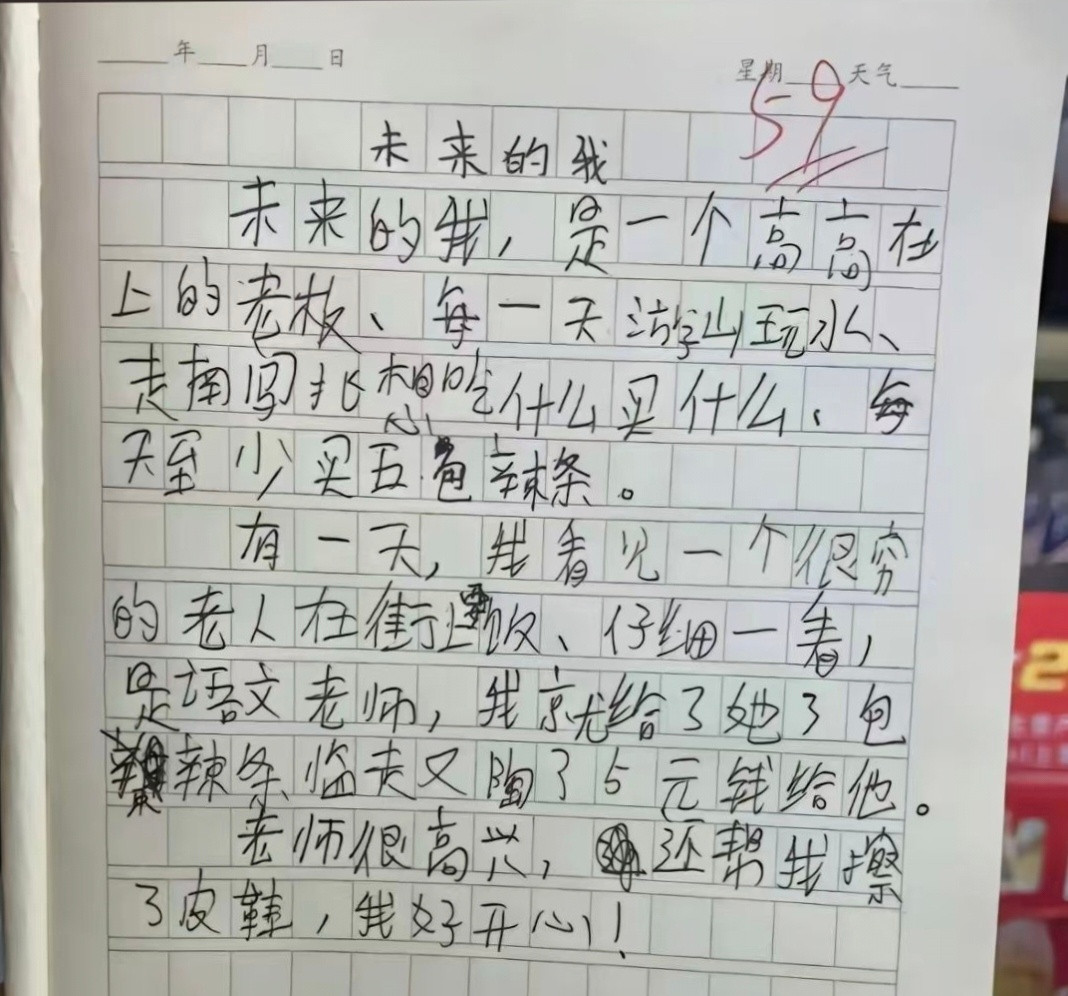 年 月 日
星期 天气
59
未来的我
未来的我，是一个高高在
上的老板、每一天游山玩水、
走南闯北想吃什么买什么、每
天至少买五包辣条。
有一天，我看见一个很穷
的老人在街边要饭、仔细一看，
是语文老师，我就给了她了包
辣条临走又陶了5元钱给他。
老师很高兴，还帮我擦
了皮鞋，我好开心！
2